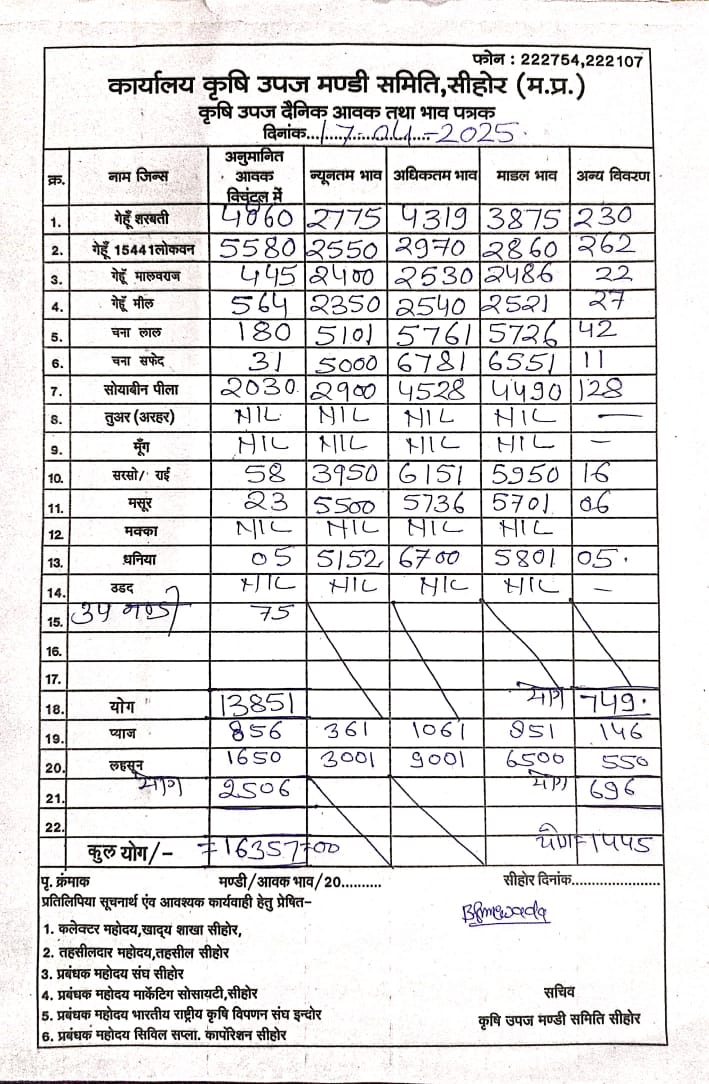 फोन : 222754,222107
कार्यालय कृषि उपज मण्डी समिति,सीहोर (म.प्र.)
कृषि उपज दैनिक आवक तथा भाव पत्रक
दिनांक...17-04-2025
क्र. नाम जिन्स अनुमानित आवक क्विंटल में न्यूनतम भाव अधिकतम भाव माडल भाव अन्य विवरण
1. गेहूँ शरबती 4860 2775 4319 3875 230
2. गेहूँ 15441लोकवन 5580 2550 2970 2860 262
3. गेहूँ मालवराज 445 2400 2530 2486 22
4. गेहूँ मील 564 2350 2540 2521 27
5. चना लाल 180 5101 5761 5726 42
6. चना सफेद 31 5000 6781 6551 11
7. सोयाबीन पीला 2030 2900 4528 4490 128
8. तुअर (अरहर) NIL NIL NIL NIL —
9. मूँग NIL NIL NIL NIL –
10. सरसो/ राई 58 3950 6151 5950 16
11. मसूर 23 5500 5736 5701 06
12 मक्का NIL NIL NIL NIL
13. धनिया 05 5152 6700 5801 05.
14. उडद NIL NIL NIL NIL –
15. उप मण्डी 75
16.
17.
18. योग 13851 योग 749.
19. प्याज 856 361 1061 951 146
20. लहसुन 1650 3001 9001 6500 550
21. योग 2506 योग 696
22.
कुल योग/- =16357=00 योग=1445
पृ. क्रंमाक मण्डी/आवक भाव/20.......... सीहोर दिनांक......................
प्रतिलिपिया सूचनार्थ एंव आवश्यक कार्यवाही हेतु प्रेषित–
1. कलेक्टर महोदय,खाद्य शाखा सीहोर,
2. तहसीलदार महोदय,तहसील सीहोर
3. प्रबंधक महोदय संघ सीहोर
4. प्रबंधक महोदय मार्केटिग सोसायटी,सीहोर
सचिव
5. प्रबंधक महोदय भारतीय राष्ट्रीय कृषि विपणन संघ इन्दोर
कृषि उपज मण्डी समिति सीहोर
6. प्रबंधक महोदय सिविल सप्ला. कार्पोरेशन सीहोर